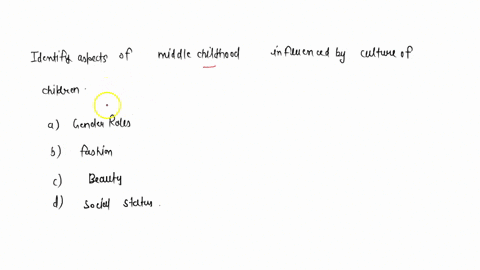 Identify aspects of middle childhood influenced by culture of
children.
a) Gender Roles
b) fashion
c) Beauty
d) social status.